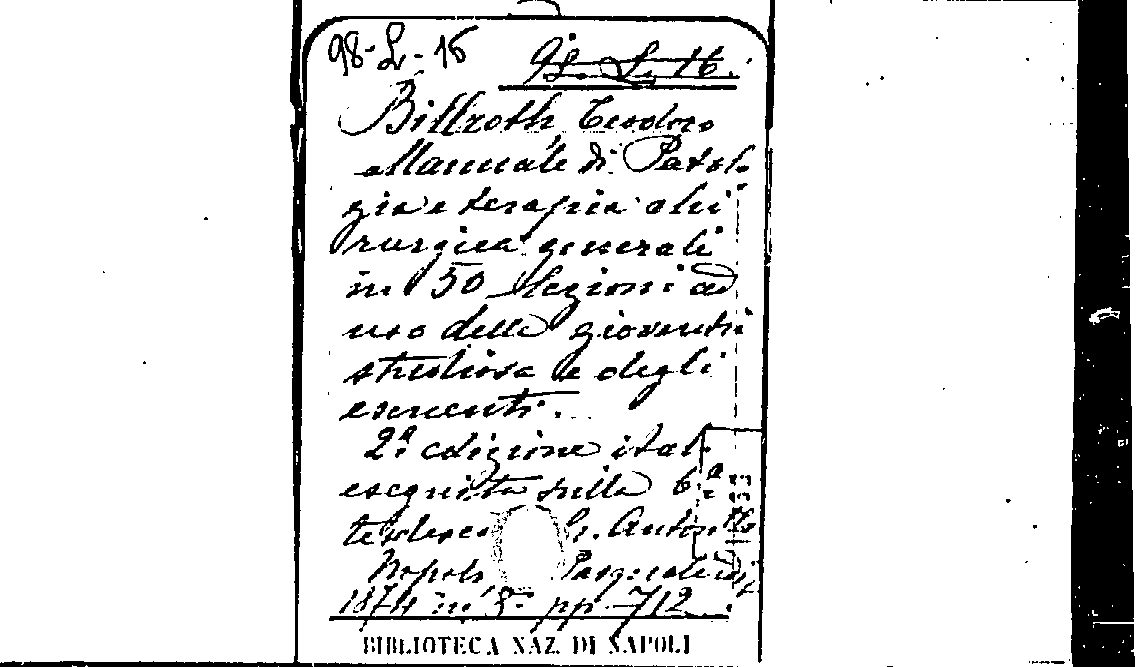 98-L-16 98. L. 16.
Billroth Teodoro
Manuale di Patolo
gia e terapia chi
rurgica generali
in 50 lezioni ad
uso della gioventù
studiosa e degli
esercenti.
2ª edizione ital.
eseguita sulla 6ª
tedesca Anton
Napoli Pasquale
1874 in 8º pp. 712
BIBLIOTECA NAZ. DI NAPOLI